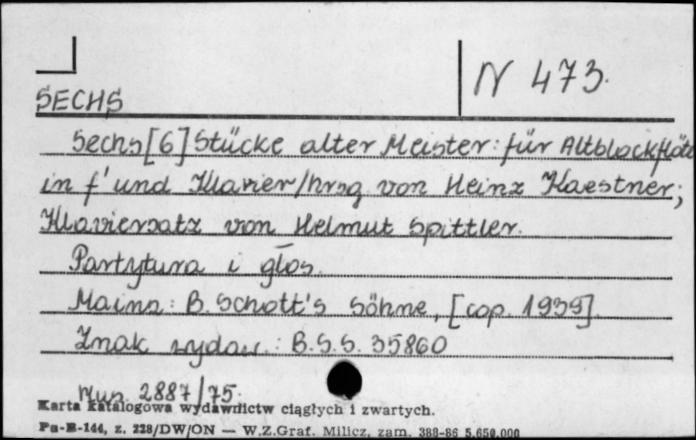 N 473.
SECHS
Sechs [6] Stücke alter Meister: für Altblockflöte
in f' und Klavier/hrsg. von Heinz Kaestner;
Klaviersatz von Helmut Spittler.
Partytura i głos.
Mainz: B. Schott's Söhne, [cop. 1939]
Znak wydaw.: B.S.S. 35860
Mus. 2887/75.
Karta katalogowa wydawnictw ciągłych i zwartych.
Pu-B-144, z. 228/DW/ON — W.Z.Graf. Milicz, zam. 388-86 5.650.000